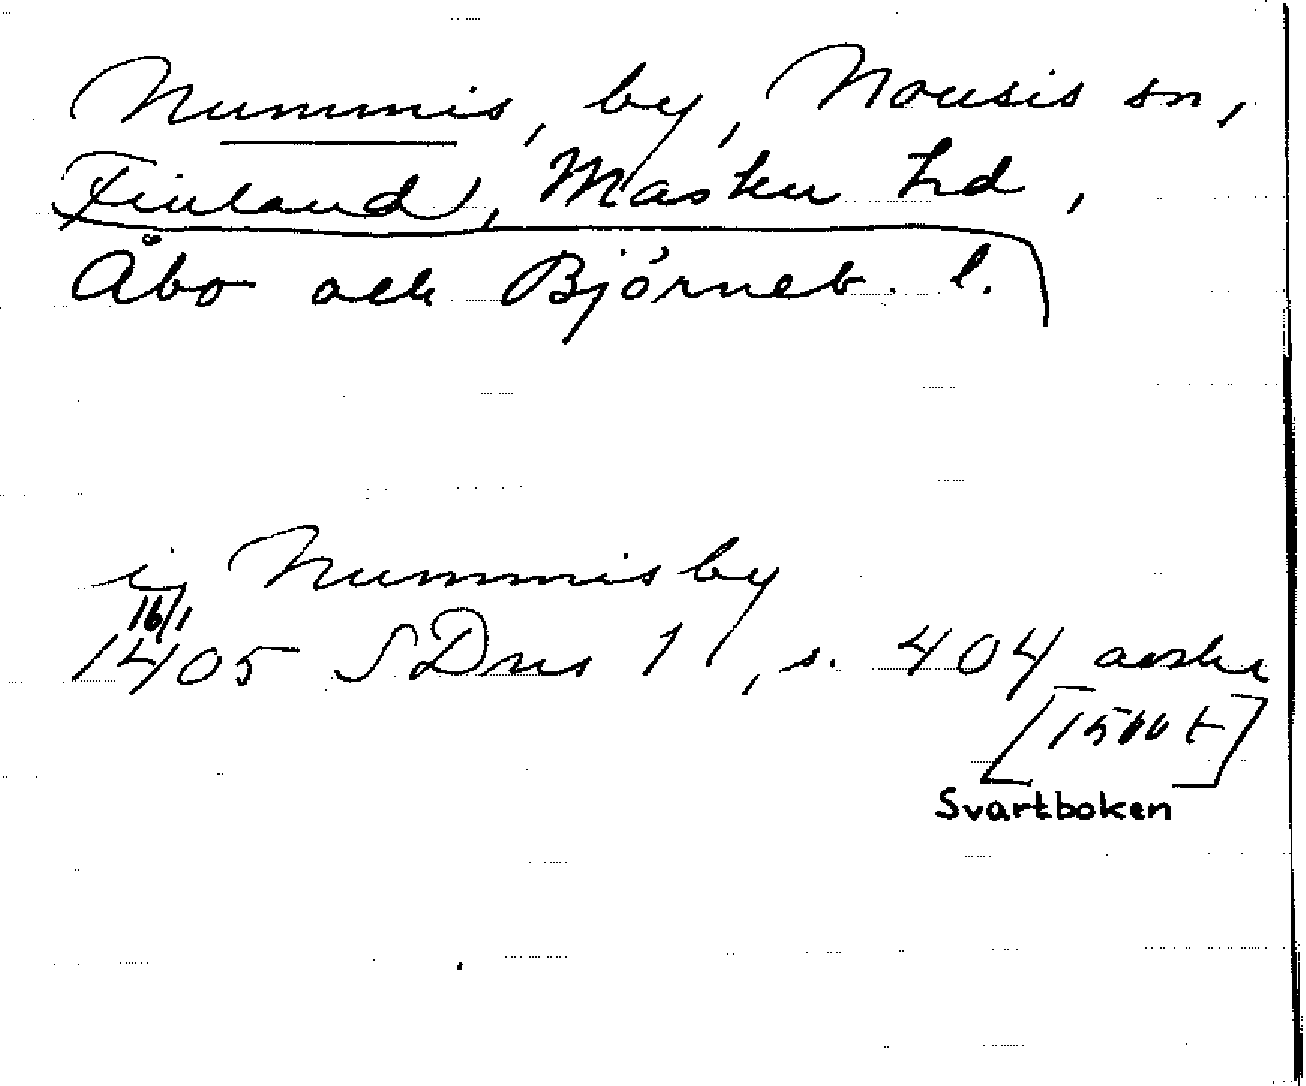 Nummis, by, Nousis sn,
Finland, Masku hd,
Åbo och Björneb. l.
i Nummis by
16/1
1405 SDns 1, s. 404 avskr
[1500 t]
Svartboken